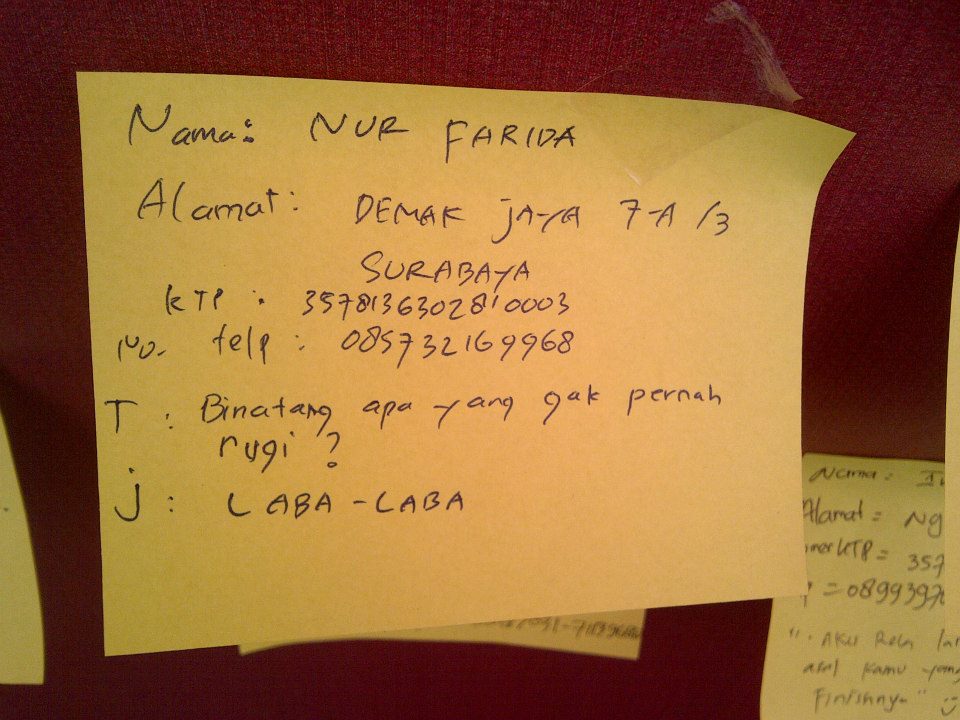 Nama: NUR FARIDA
Alamat: DEMAK JAYA 7-A /3
SURABAYA
KTP : 3578136302810003
No. telp : 085732169968
T : Binatang apa yang gak pernah
rugi ?
J : LABA-LABA
Nama :
Alamat = Ng
KTP = 357
= 0899397
". AKU Rela
asal kamu yang
Finishnya"